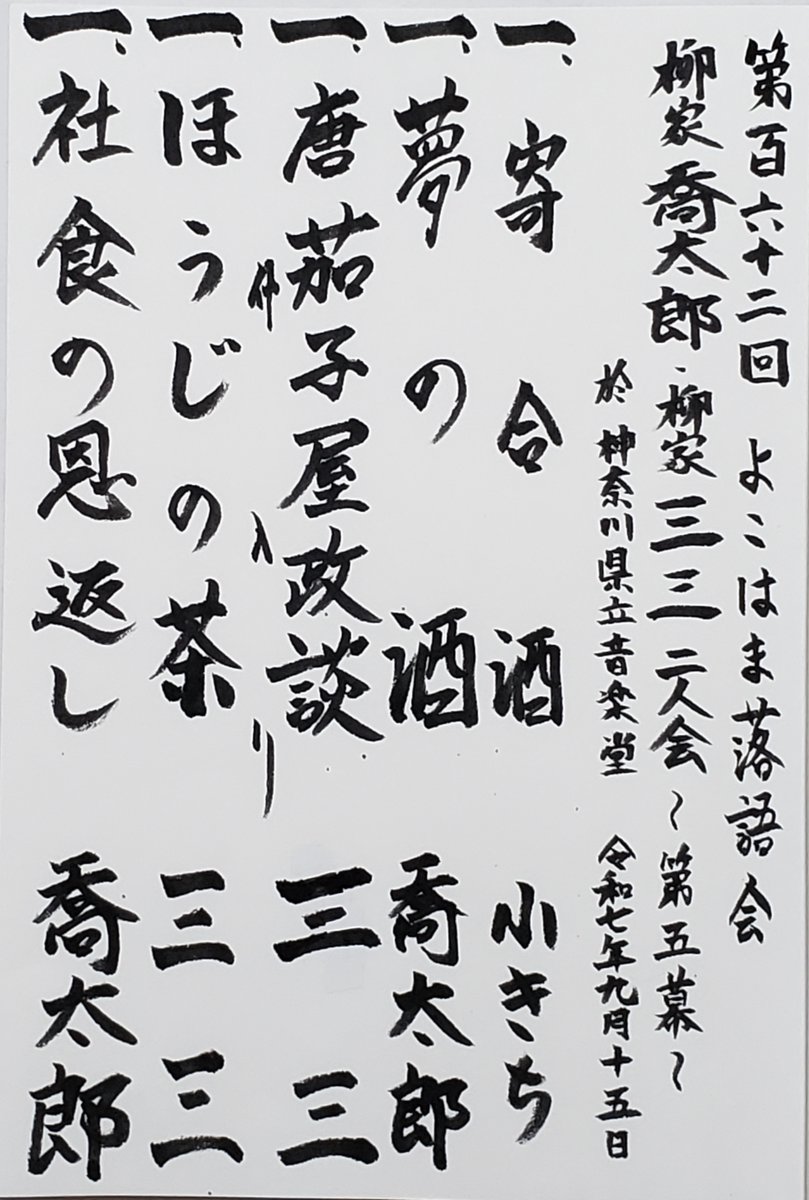 第百六十二回 よこはま落語会
柳家喬太郎・柳家三三 二人会 ~第五幕~
於 神奈川県立音楽堂 令和七年九月十五日
一、寄合酒 小きち
一、夢の酒 喬太郎
一、唐茄子屋政談 三三
仲入り
一、ほうじの茶 三三
一、社食の恩返し 喬太郎